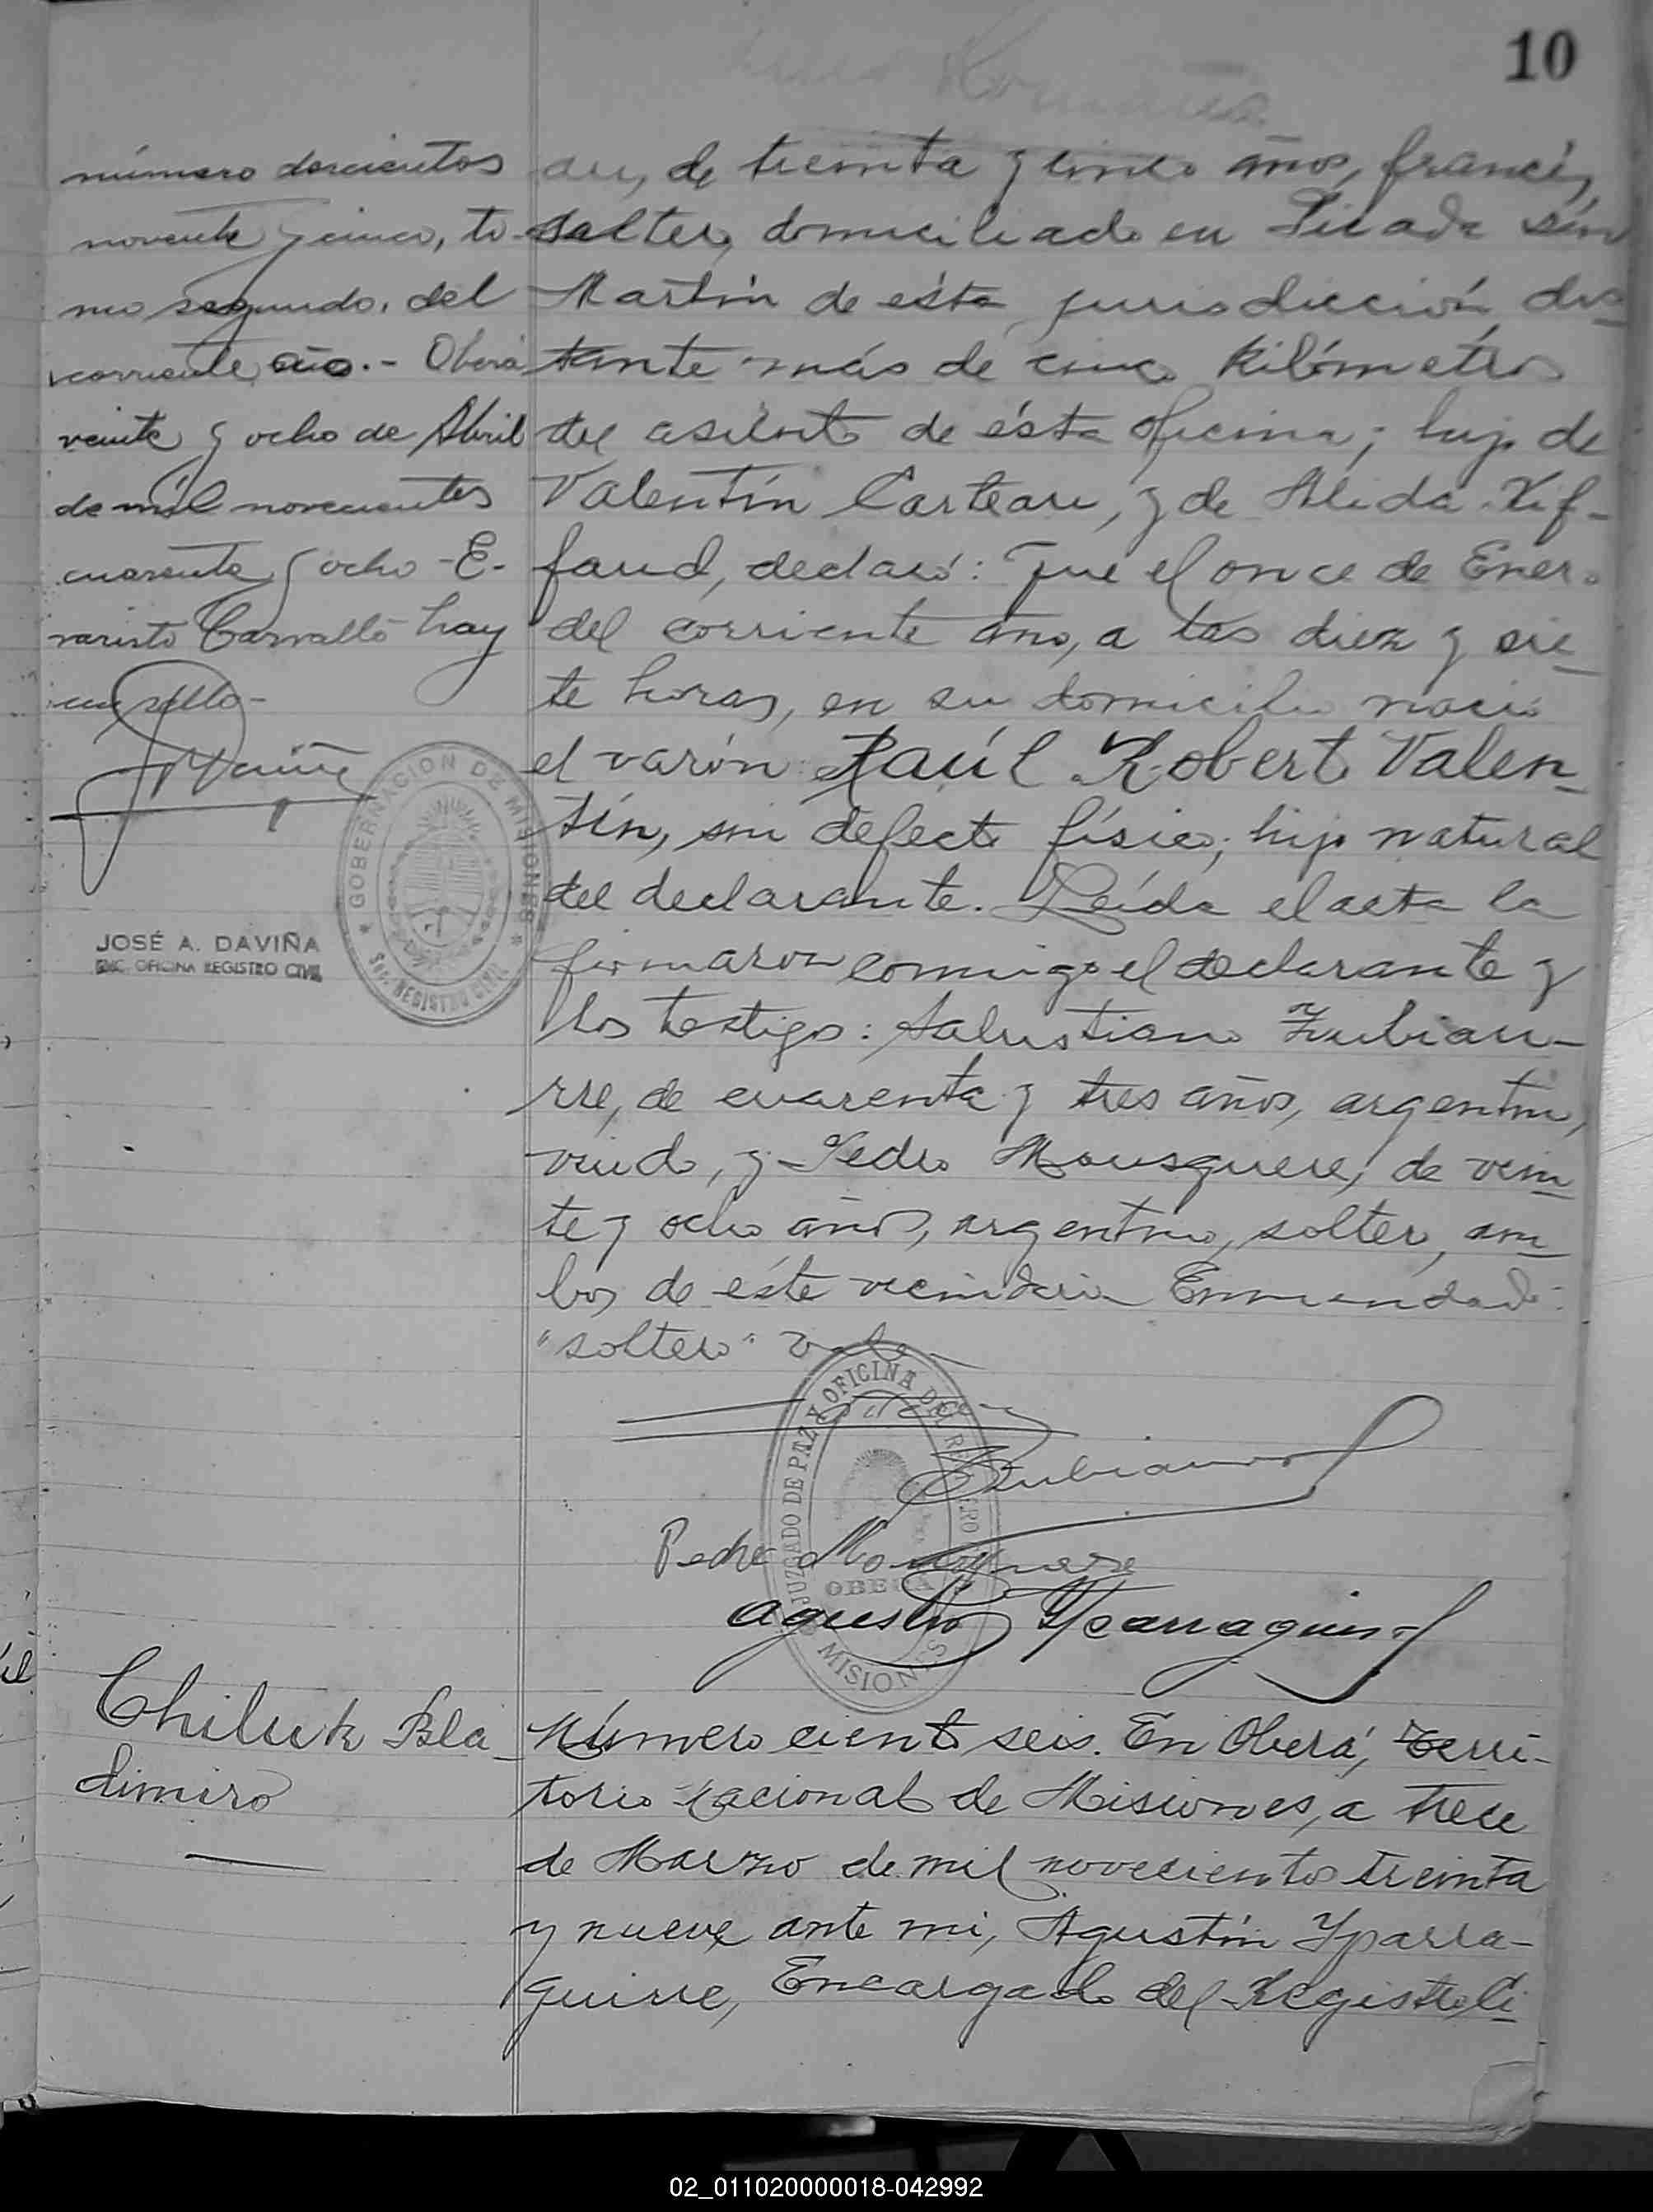 10
número doscientos
noventa y cinco, to-
mo segundo, del
corriente año.- Oberá
veinte y ocho de Abril
de mil novecientos
cuarenta y ocho - E-
varisto Carvallo hay
un sello-
GOBERNACION DE MISIONES
REGISTRO CIVIL
JOSÉ A. DAVIÑA
ENC. OFICINA REGISTRO CIVIL
au, de treinta y cinco años, francés,
soltero, domiciliado en Picada San
Martín de ésta jurisdicción, dis-
tante más de cinco kilómetros
del asiento de ésta oficina; hijo de
Valentín Carteau, y de Alida Rif-
faud, declaró: Que el once de Enero
del corriente año, a las diez y sie-
te horas, en su domicilio nació
el varón: Raúl Robert Valen-
tín, sin defecto físico; hijo natural
del declarante. Leída el acta la
firmaron conmigo el declarante y
los testigos: Salustiano Zubiau-
rre, de cuarenta y tres años, argentino,
viudo, y Pedro Mousquere, de vein-
te y ocho años, argentino, soltero, am-
bos de éste vecindario Enmendado:
"soltero" Vale
JUZGADO DE PAZ Y OFICINA DEL REGISTRO
OBERA
MISIONES
Zubiaurre
Pedro Mousquere
Agustín Yparraguirre
Chiluk Bla-
dimiro
Número ciento seis. En Oberá, Terri-
torio Nacional de Misiones, a trece
de Marzo de mil novecientos treinta
y nueve, ante mi, Agustín Yparra-
guirre, Encargado del Registro Ci-
02_011020000018-042992